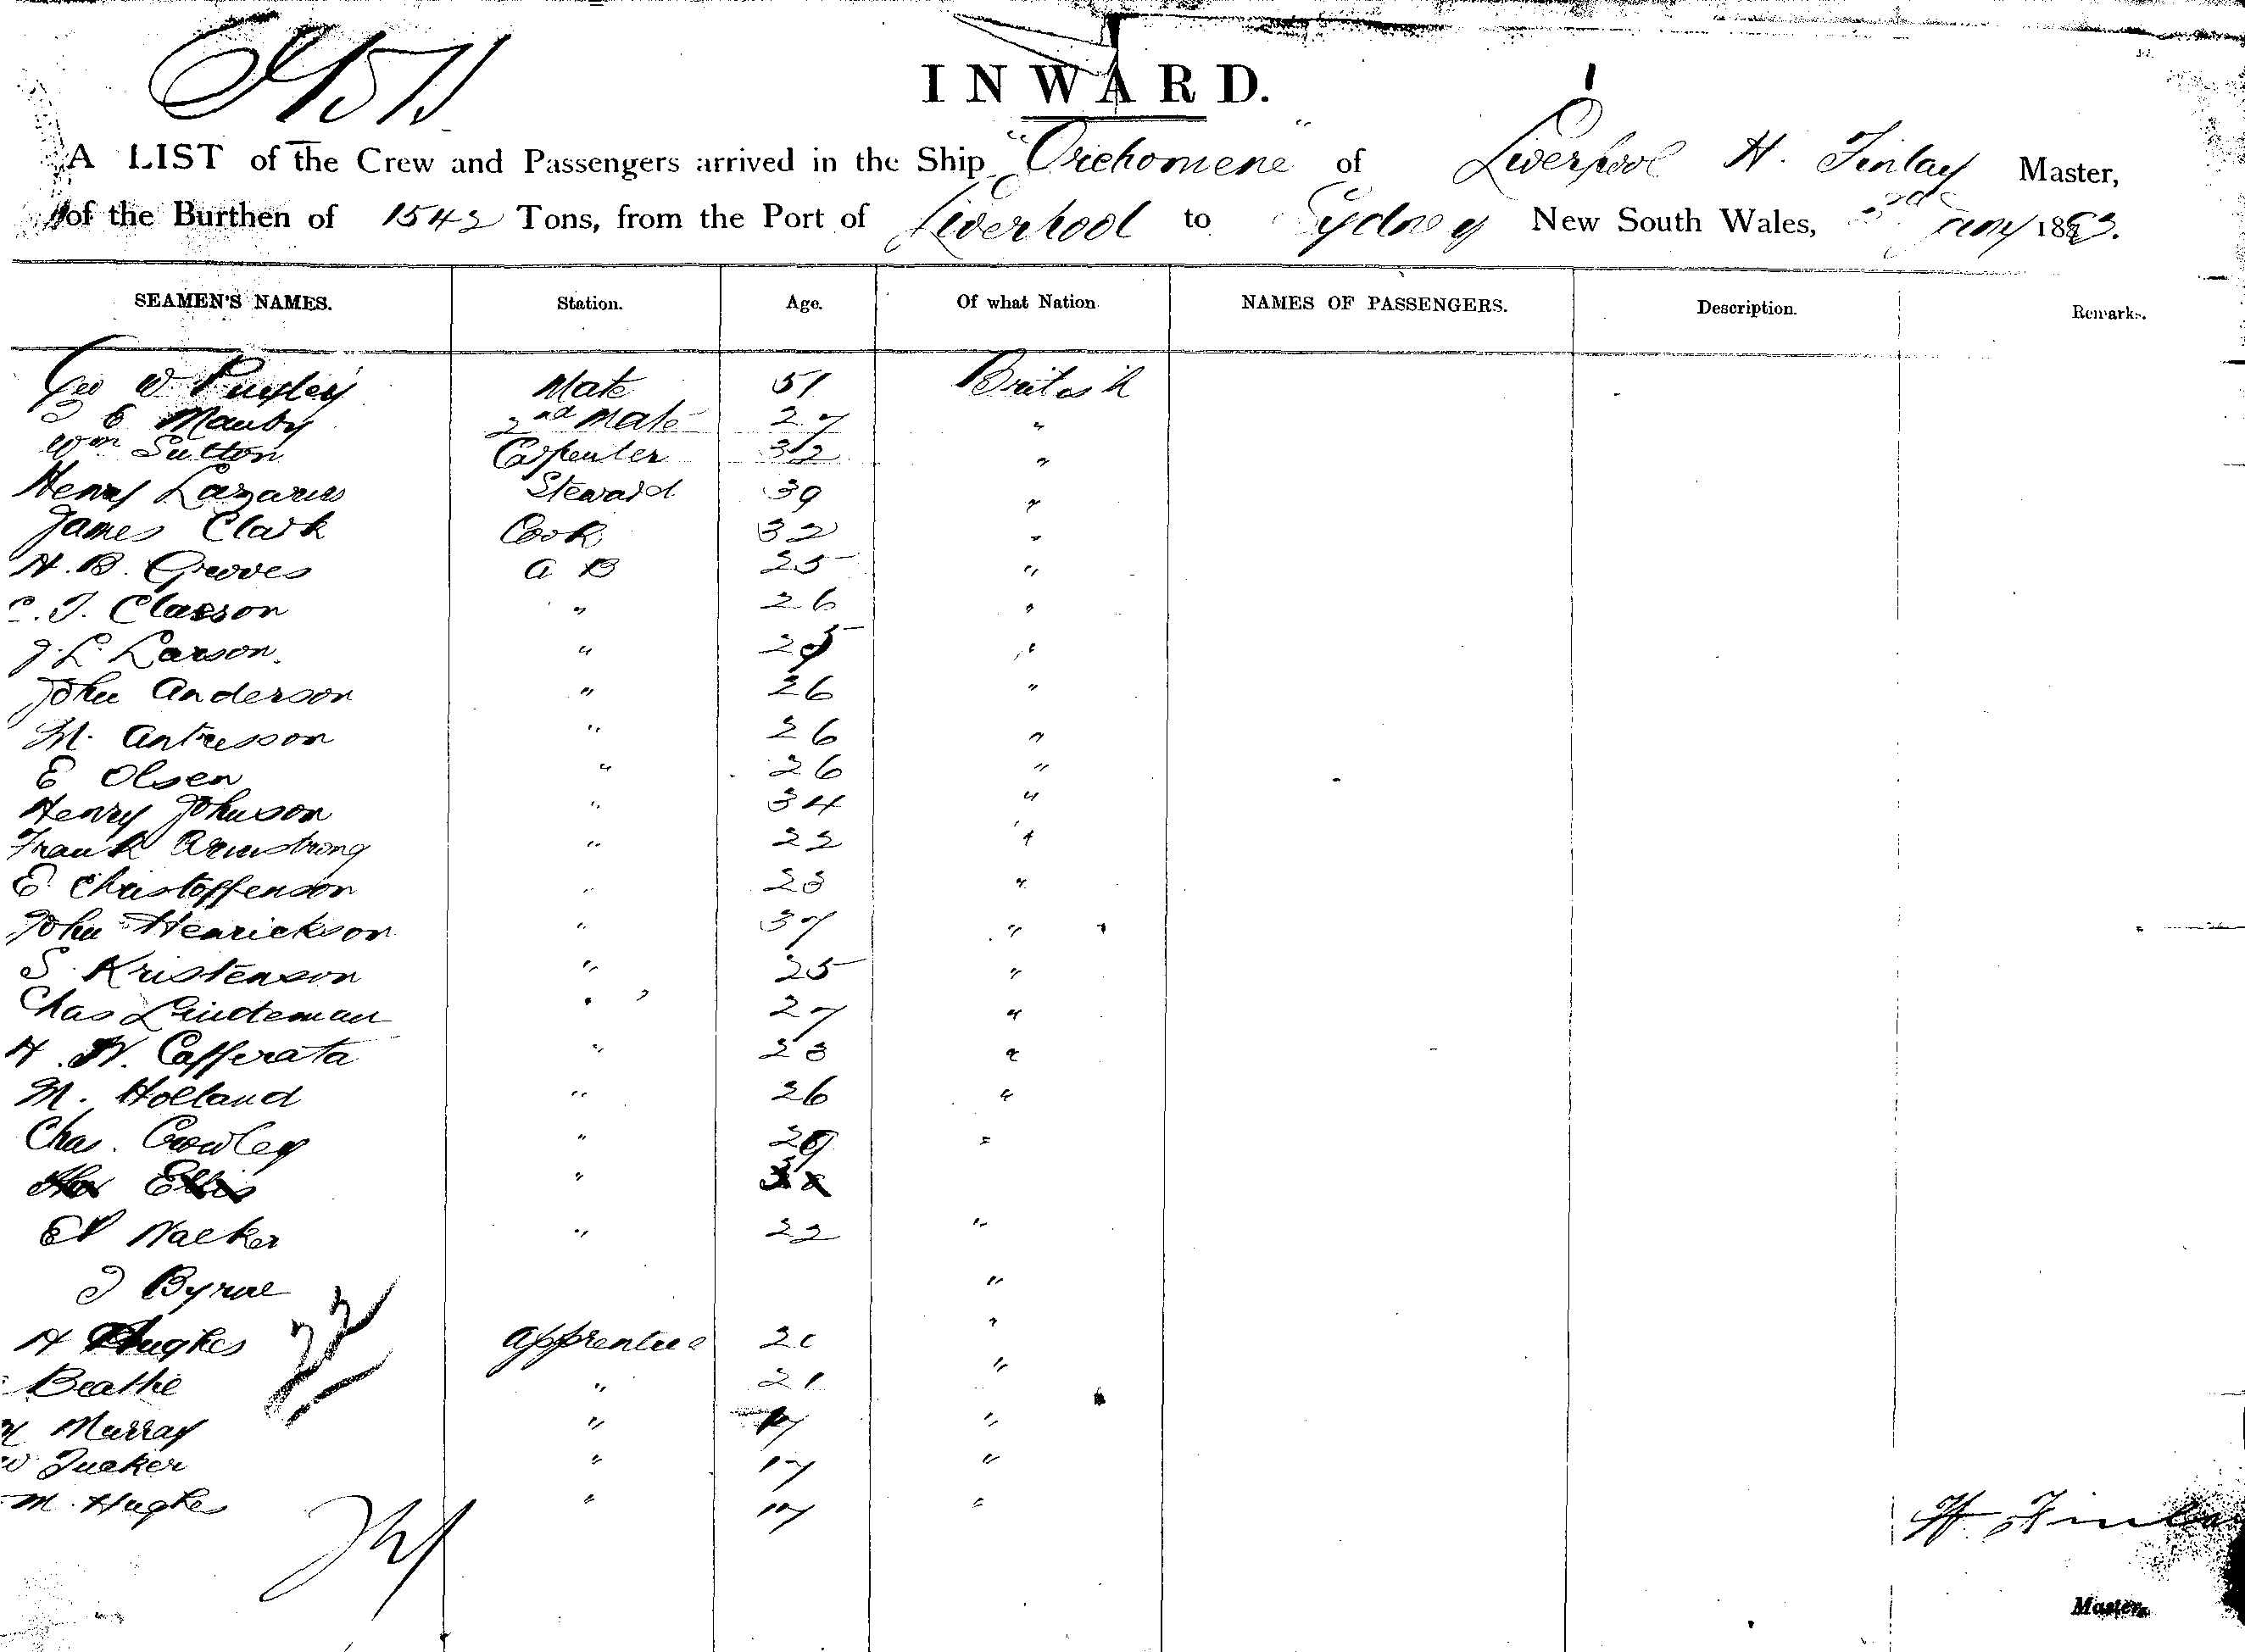 INWARD.
A LIST of the Crew and Passengers arrived in the Ship "Orchomene" of Liverpool H. Finlay Master,
of the Burthen of 1542 Tons, from the Port of Liverpool to Sydney New South Wales, Jany 1883.
SEAMEN'S NAMES. Station. Age. Of what Nation. NAMES OF PASSENGERS. Description. Remarks.
Geo W Mate 51 British
E Manby 2nd Mate 27 "
Wm Sutton Carpenter 32 "
Henry Lazarus Steward 39 "
James Clark Cook 32 "
H. B. Groves A B 25 "
C. J. Classon " 26 "
J. L. Larson. " 25 "
John Anderson " 26 "
M. Antresson " 26 "
E Olsen " 26 "
Henry Johnson " 34 "
Frank Armstrong " 22 "
E. Christoffenson " 23 "
John Henrickson " 37 "
S. Kristenson " 25 "
Chas Lindeman " 27 "
H. W. Cafferata " 23 "
M. Holland " 26 "
Chas. Crowley " "
Ellis "
" 22 "
J Byrne "
H Hughes Apprentice "
Beattie " 21 "
Murray " 17 "
W Tucker " 17 "
M. Hughes " 17 "
22
H. Finlay
Master.